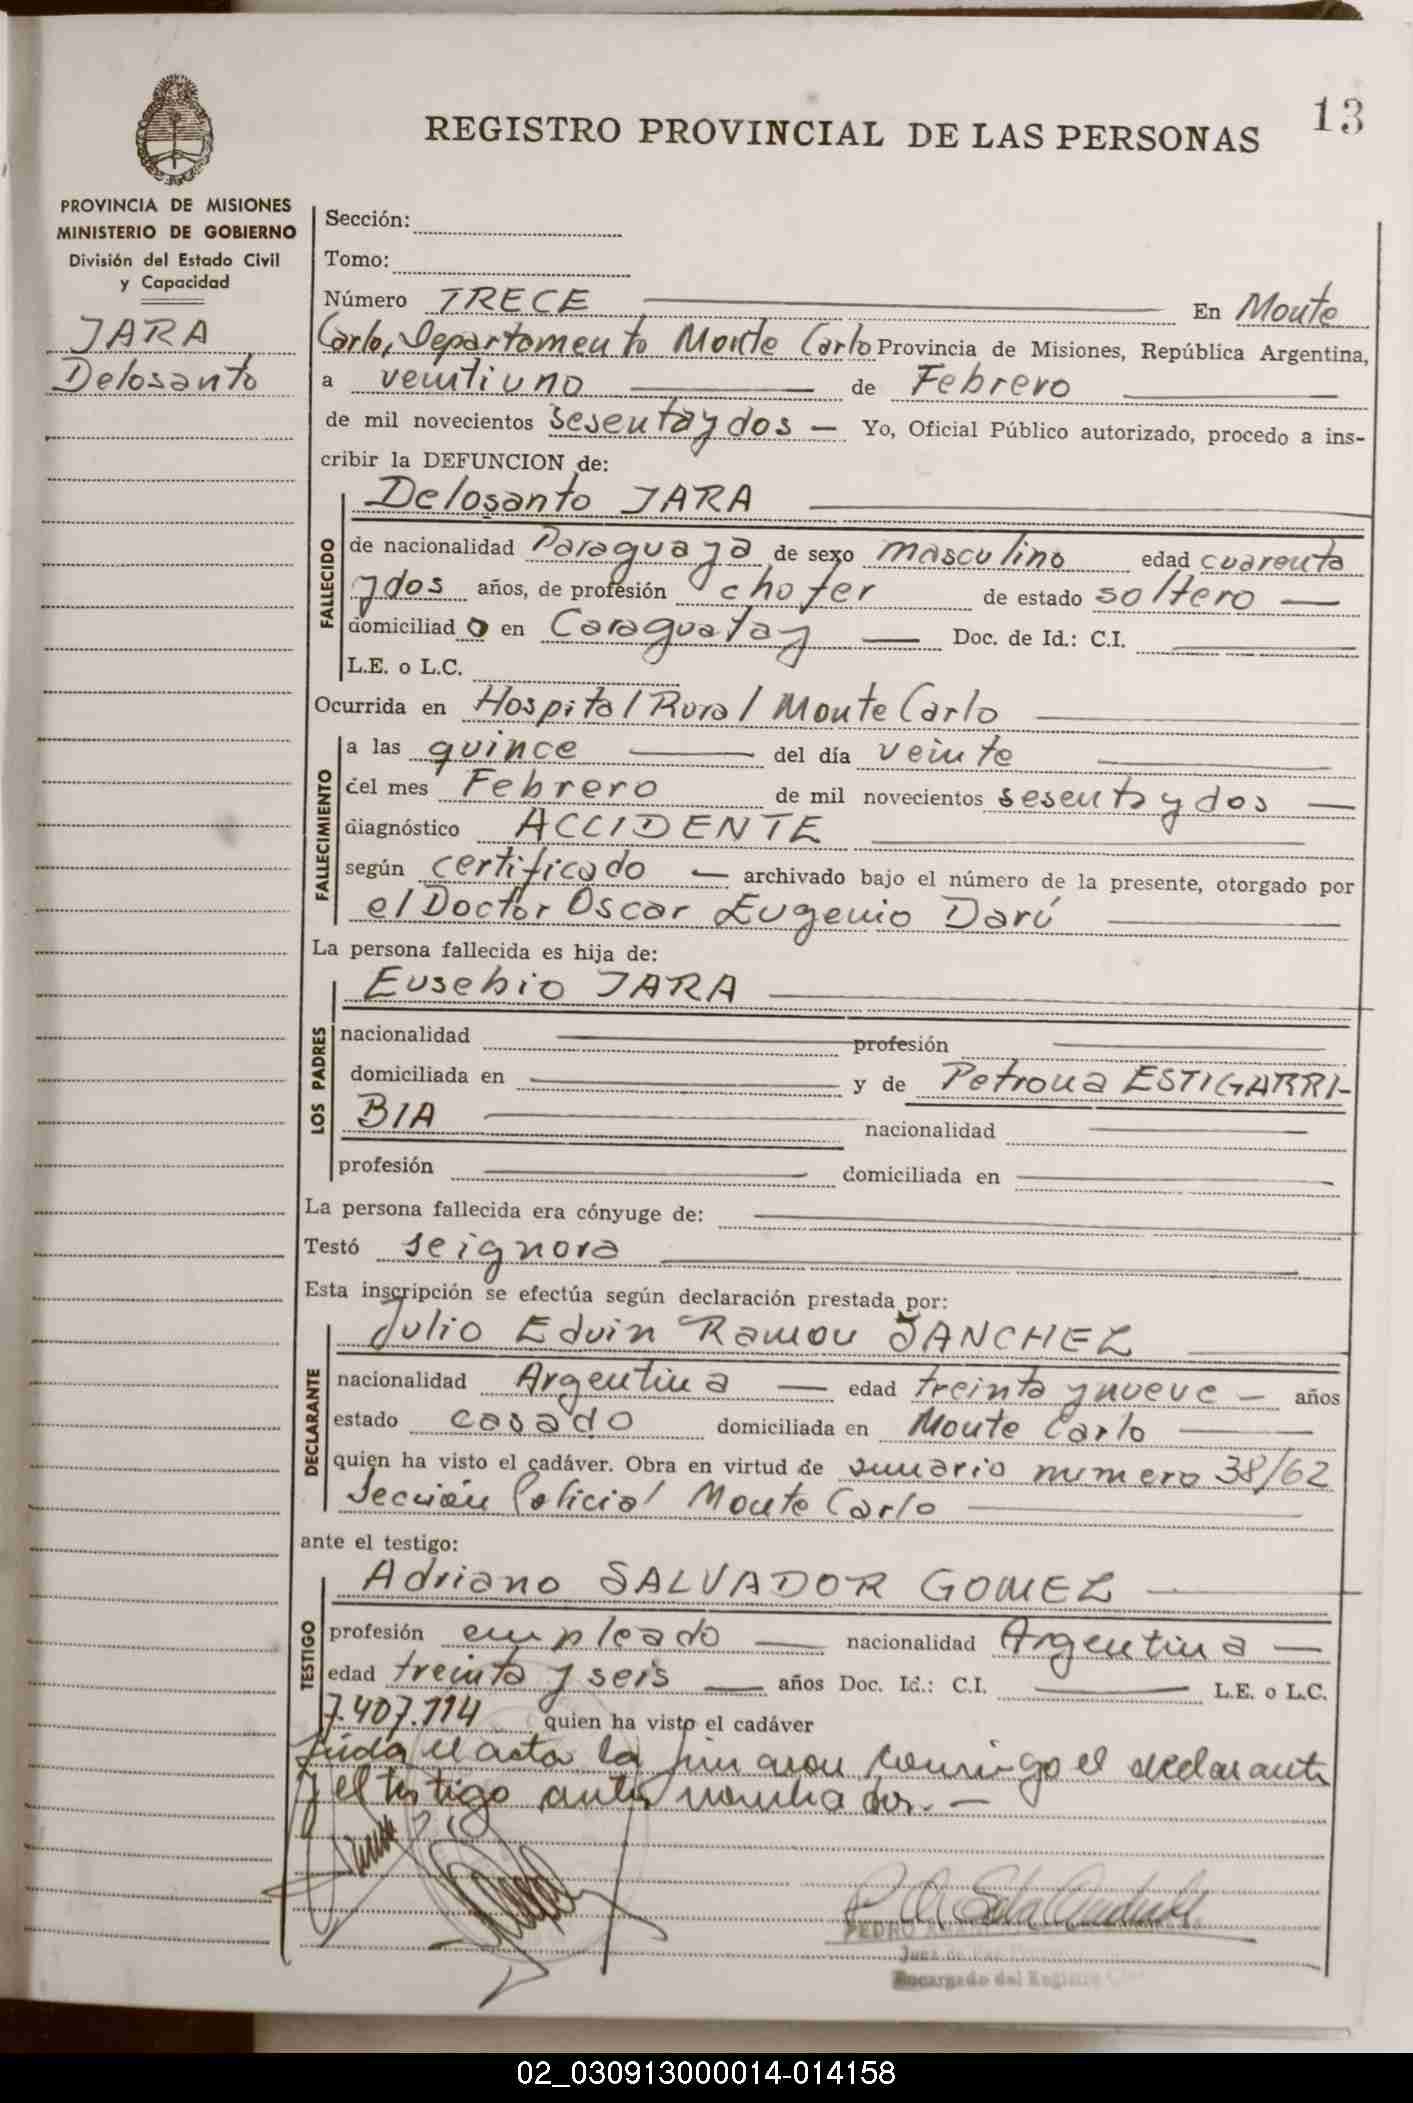 13
REGISTRO PROVINCIAL DE LAS PERSONAS
PROVINCIA DE MISIONES
MINISTERIO DE GOBIERNO
División del Estado Civil
y Capacidad
JARA
Delosanto
Sección:
Tomo:
Número TRECE En Monte
Carlo, Departamento Monte Carlo Provincia de Misiones, República Argentina,
a veintiuno de Febrero
de mil novecientos sesentaydos — Yo, Oficial Público autorizado, procedo a ins-
cribir la DEFUNCION de:
Delosanto JARA
FALLECIDO
de nacionalidad Paraguaya de sexo masculino edad cuarenta
ydos años, de profesión chofer de estado soltero —
domiciliado en Caraguatay — Doc. de Id.: C.I.
L.E. o L.C.
Ocurrida en Hospital Rural Monte Carlo
FALLECIMIENTO
a las quince del día veinte
del mes Febrero de mil novecientos sesentaydos —
diagnóstico ACCIDENTE
según certificado — archivado bajo el número de la presente, otorgado por
el Doctor Oscar Eugenio Darú
La persona fallecida es hija de:
Eusebio JARA
LOS PADRES
nacionalidad profesión
domiciliada en y de Petrona ESTIGARRI-
BIA nacionalidad
profesión domiciliada en
La persona fallecida era cónyuge de:
Testó seignora
Esta inscripción se efectúa según declaración prestada por:
Julio Eduin Ramon SANCHEZ
DECLARANTE
nacionalidad Argentina — edad treinta ynueve — años
estado casado domiciliada en Monte Carlo
quien ha visto el cadáver. Obra en virtud de sumario numero 38/62
Sección Policial Monte Carlo
ante el testigo:
Adriano SALVADOR GOMEZ
TESTIGO
profesión empleado — nacionalidad Argentina —
edad treinta y seis — años Doc. Id.: C.I. L.E. o L.C.
7.407.114 quien ha visto el cadáver
Leída el acta la firman conmigo el declarante
y el testigo
PEDRO
Juez de Paz
Encargado del Registro
02_030913000014-014158